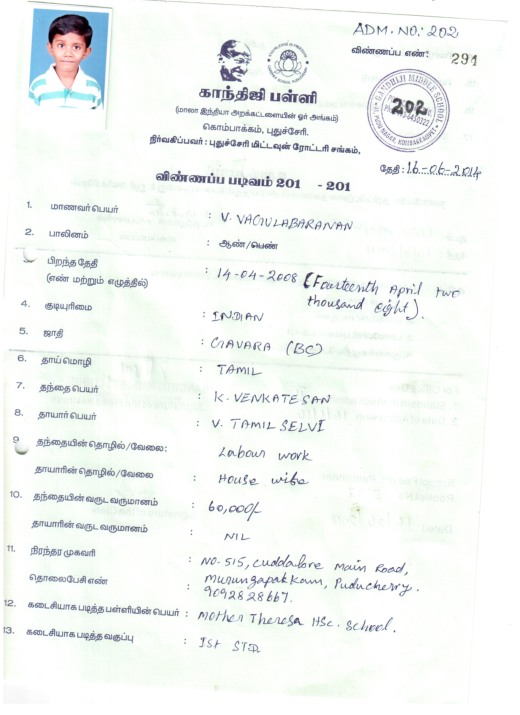 ADM. NO: 202
விண்ணப்ப எண்: 291
காந்திஜி பள்ளி
(மாலா இந்தியா அறக்கட்டளையின் ஓர் அங்கம்)
கொம்பாக்கம், புதுச்சேரி.
நிர்வகிப்பவர் : புதுச்சேரி மிட்டவுன் ரோட்டரி சங்கம்.
GANDHIJI MIDDLE SCHOOL
202
தேதி : 16-06-2014
விண்ணப்ப படிவம் 201 - 201
1. மாணவர் பெயர் : V. VAGULABARANAN
2. பாலினம் : ஆண்/பெண்
பிறந்த தேதி : 14-04-2008 (Fourteenth April two
(எண் மற்றும் எழுத்தில்) thousand eight).
4. குடியுரிமை : INDIAN
5. ஜாதி : GAVARA (BC)
6. தாய்மொழி : TAMIL
7. தந்தை பெயர் : K. VENKATESAN
8. தாயார் பெயர் : V. TAMIL SELVI
9 தந்தையின் தொழில்/வேலை: Labour work
தாயாரின் தொழில்/வேலை : House wife
10. தந்தையின் வருட வருமானம் : 60,000/-
தாயாரின் வருட வருமானம் : NIL
11. நிரந்தர முகவரி : NO. 515, Cuddalore Main Road,
Murungapakkam, Puducherry.
தொலைபேசி எண் : 9092828667.
12. கடைசியாக படித்த பள்ளியின் பெயர் : Mother Theresa HSc. School.
13. கடைசியாக படித்த வகுப்பு : Ist STD